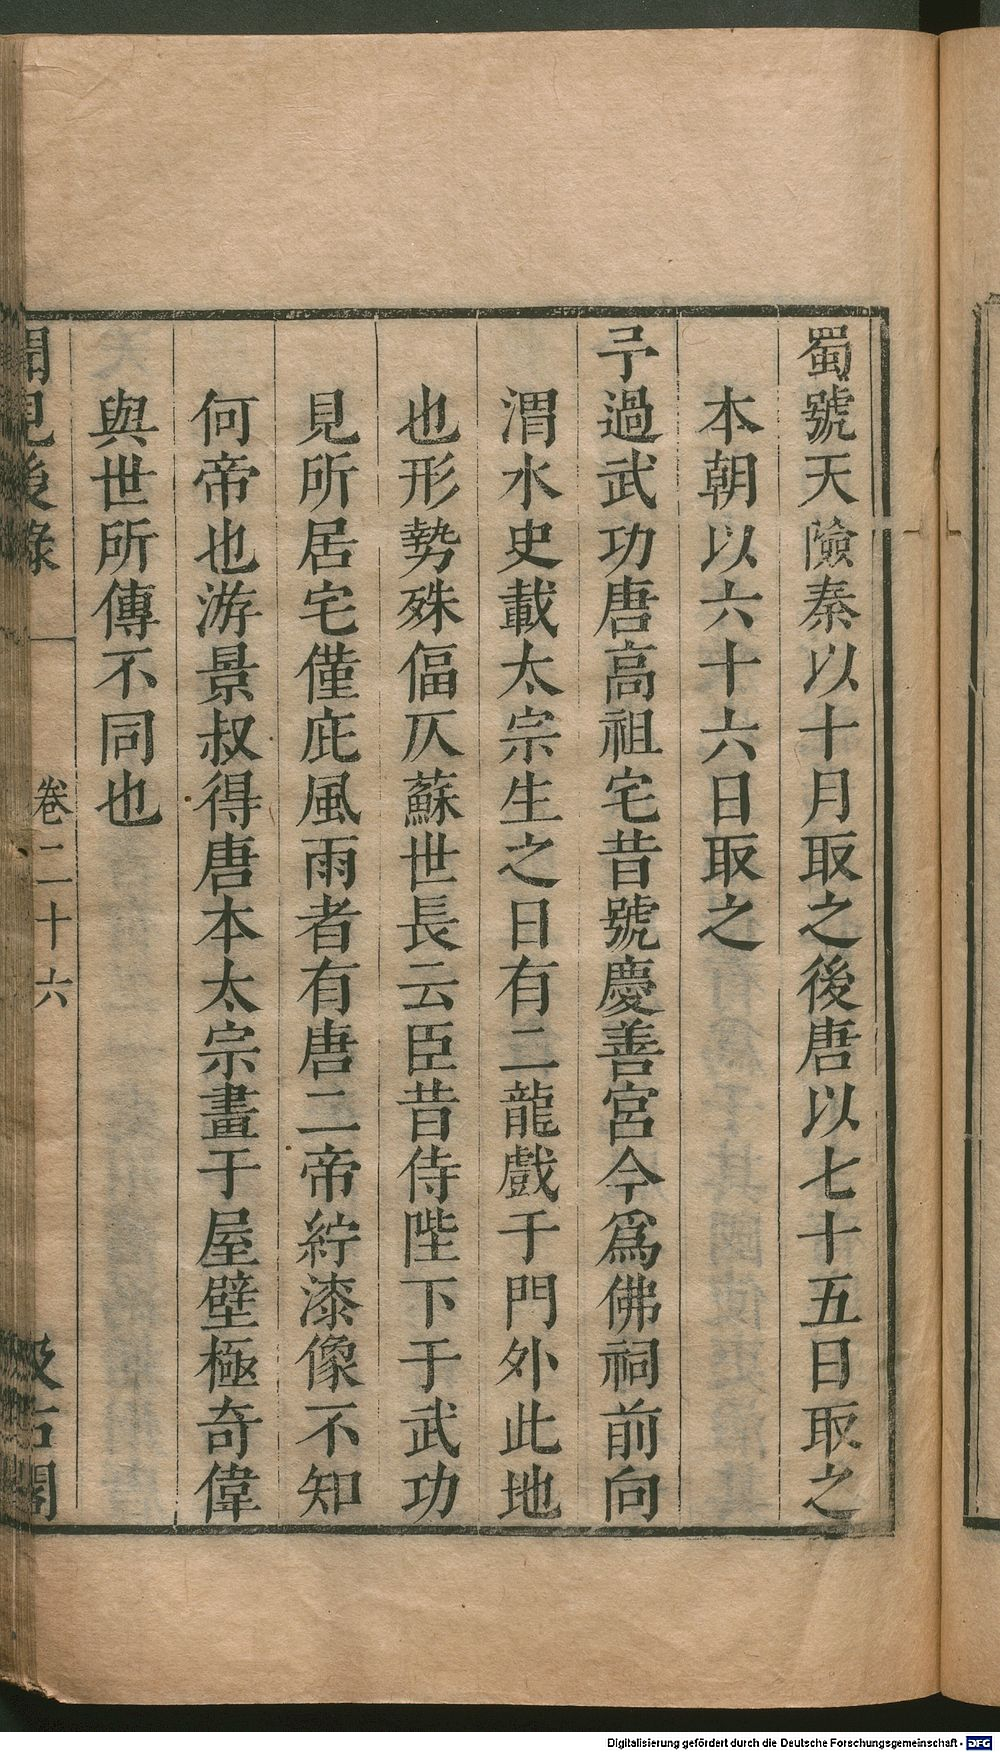 蜀號天險秦以十月取之後唐以七十五日取之
本朝以六十六日取之
予過武功唐高祖宅昔號慶善宮今爲佛祠前向
渭水史載太宗生之日有二龍戲于門外此地
也形勢殊偪仄蘇世長云臣昔侍陛下于武功
見所居宅僅庇風雨者有唐二帝紵漆像不知
何帝也游景叔得唐本太宗畫于屋壁極奇偉
與世所傳不同也
聞見後錄 卷二十六 汲古閣
Digitalisierung gefördert durch die Deutsche Forschungsgemeinschaft - DFG